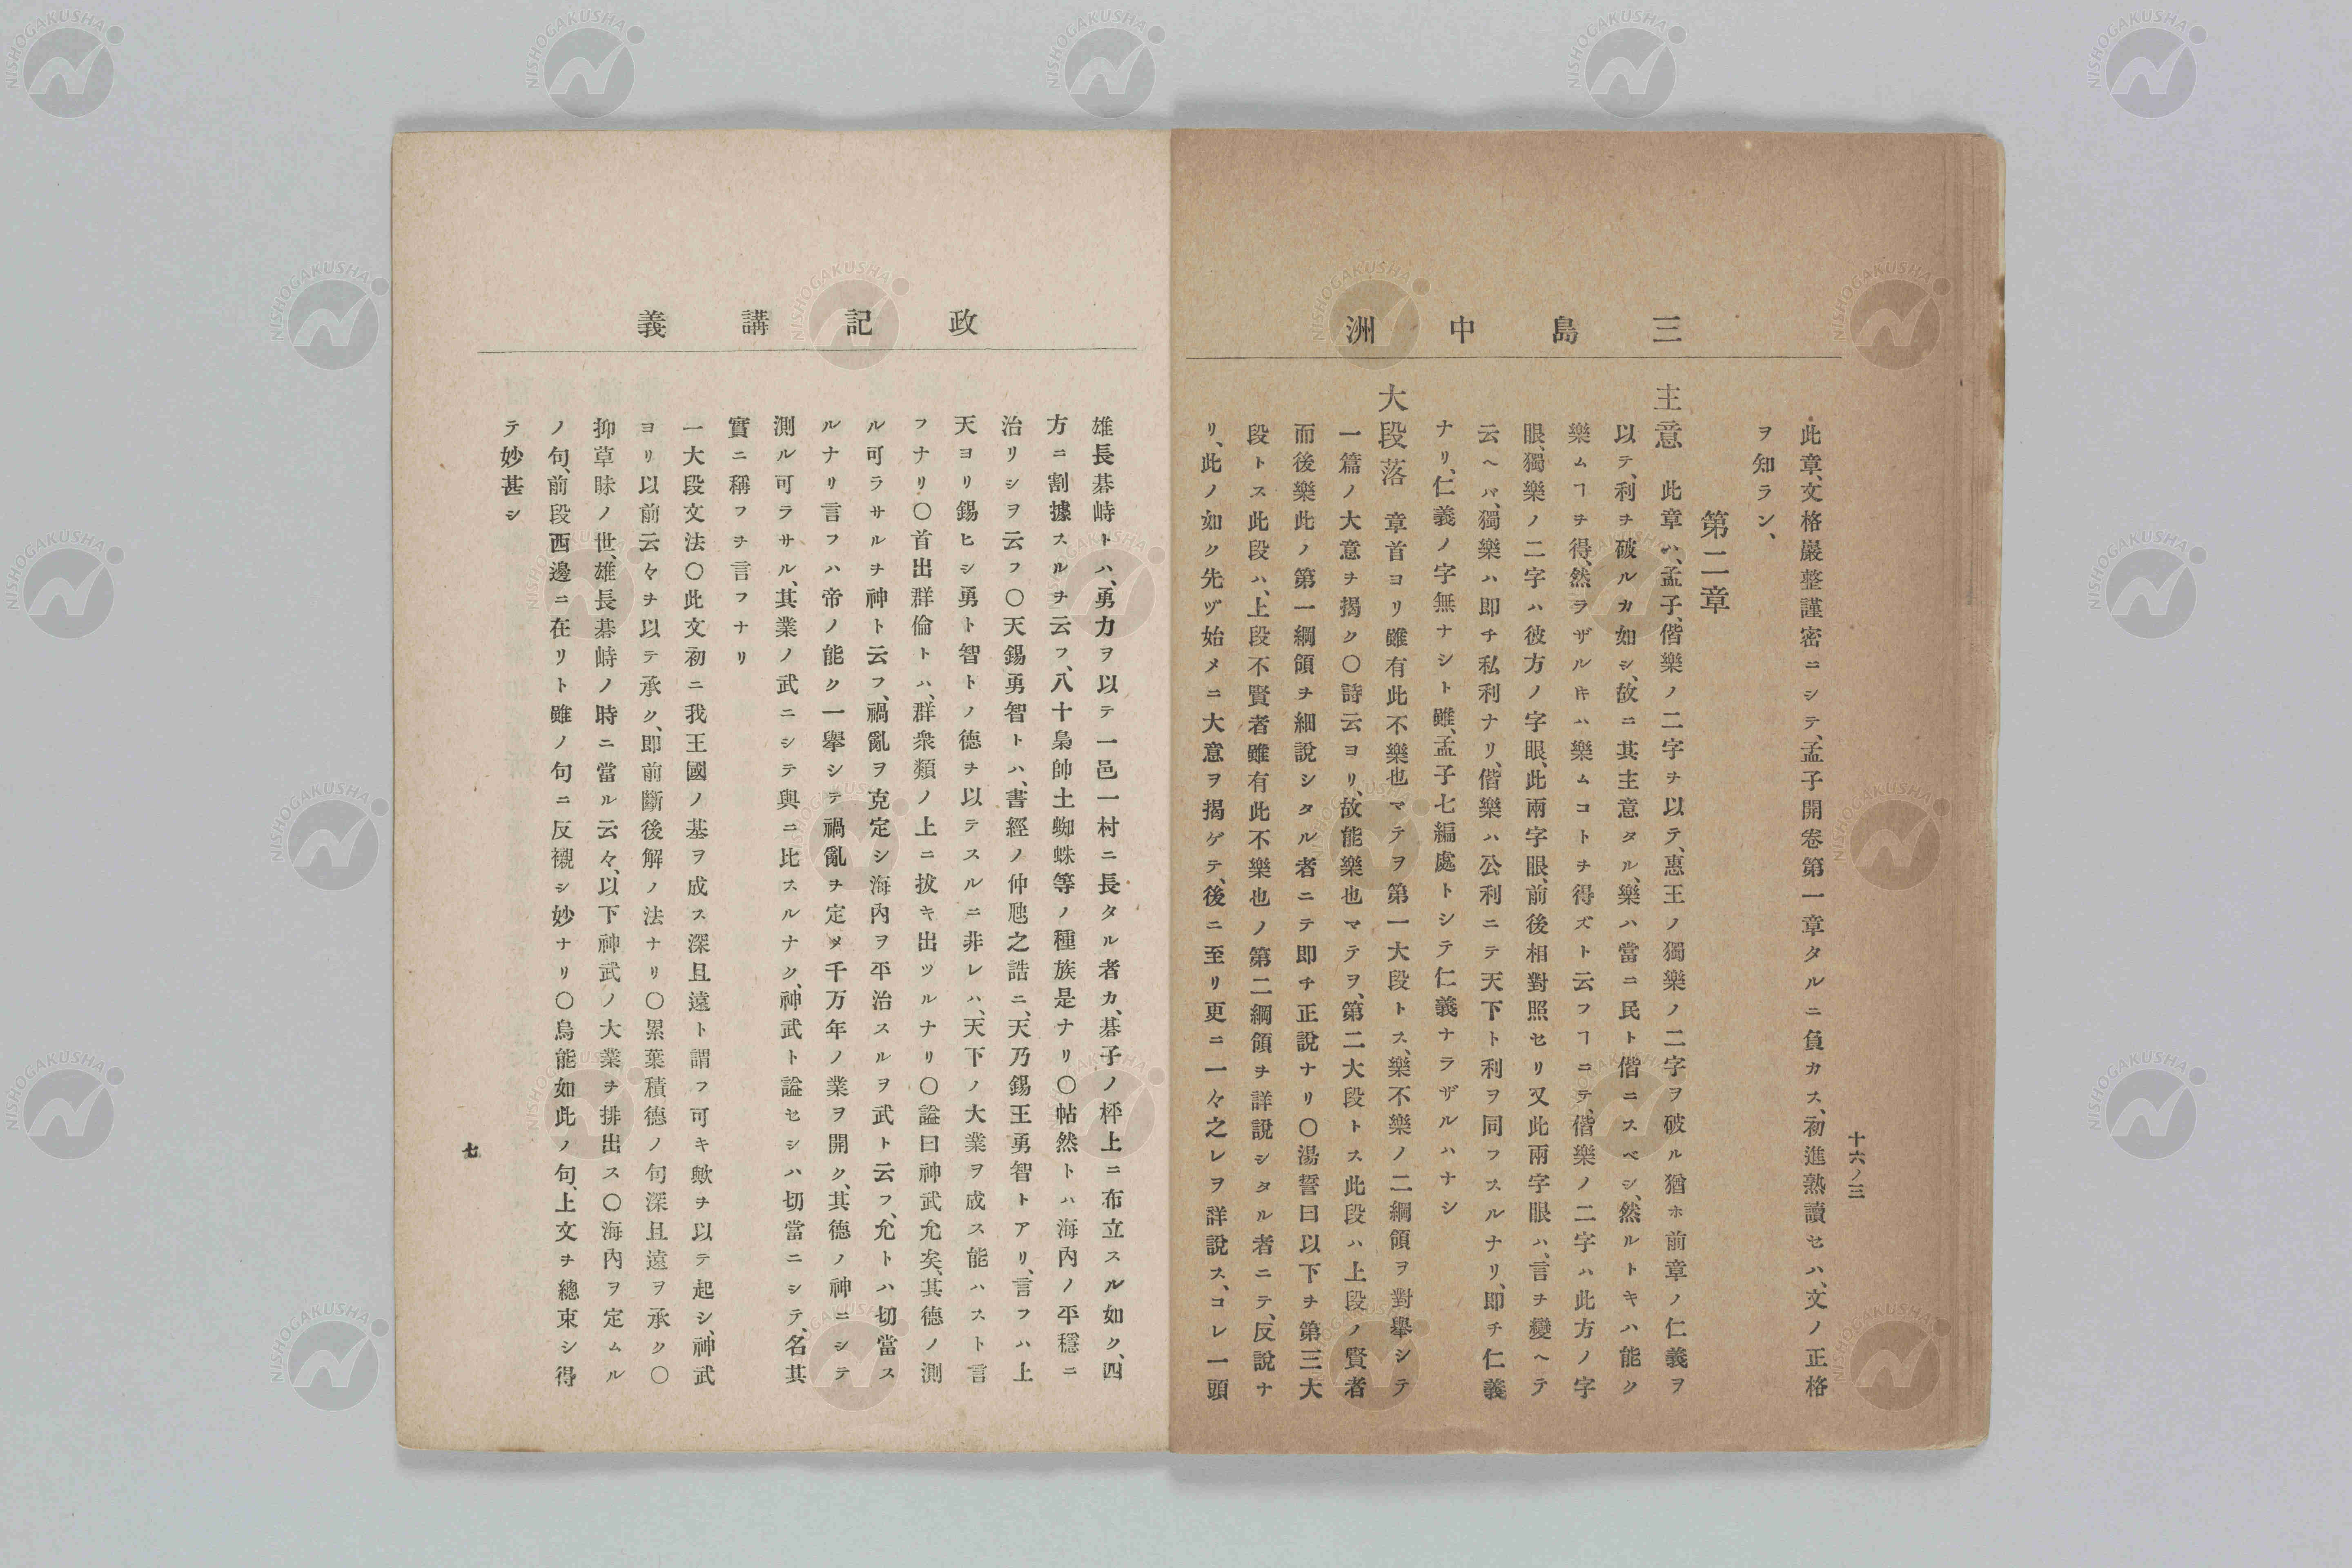 三島中洲
十六ノ三
此章、文格嚴整謹密ニシテ、孟子開卷第一章タルニ負カス、初進熟讀セハ、文ノ正格
ヲ知ラン、
第二章
主意 此章ハ、孟子、偕樂ノ二字ヲ以テ、惠王ノ獨樂ノ二字ヲ破ル猶ホ前章ノ仁義ヲ
以テ、利ヲ破ルカ如シ、故ニ其主意タル、樂ハ當ニ民ト偕ニスベシ、然ルトキハ能ク
樂ムヿヲ得、然ラザルキハ樂ムコトヲ得ズト云フヿニテ、偕樂ノ二字ハ此方ノ字
眼、獨樂ノ二字ハ彼方ノ字眼、此兩字眼、前後相對照セリ又此兩字眼ハ、言ヲ變ヘテ
云ヘバ、獨樂ハ即チ私利ナリ、偕樂ハ公利ニテ天下ト利ヲ同フスルナリ、即チ仁義
ナリ、仁義ノ字無ナシト雖、孟子七編處トシテ仁義ナラザルハナシ
大段落 章首ヨリ雖有此不樂也マテヲ第一大段トス、樂不樂ノ二綱領ヲ對擧シテ
一篇ノ大意ヲ揭ク〇詩云ヨリ、故能樂也マテヲ、第二大段トス此段ハ上段ノ賢者
而後樂此ノ第一綱領ヲ細說シタル者ニテ即チ正說ナリ〇湯誓曰以下ヲ第三大
段トス此段ハ、上段不賢者雖有此不樂也ノ第二綱領ヲ詳說シタル者ニテ、反說ナ
リ、此ノ如ク先ヅ始メニ大意ヲ揭ゲテ、後ニ至リ更ニ一々之レヲ詳說ス、コレ一頭
政記講義
雄長棊峙トハ、勇力ヲ以テ一邑一村ニ長タル者カ、棊子ノ枰上ニ布立スル如ク、四
方ニ割據スルヲ云フ、八十梟帥土蜘蛛等ノ種族是ナリ〇帖然トハ海內ノ平穩ニ
治リシヲ云フ〇天錫勇智トハ、書經ノ仲虺之誥ニ、天乃錫王勇智トアリ、言フハ上
天ヨリ錫ヒシ勇ト智トノ德ヲ以テスルニ非レハ、天下ノ大業ヲ成ス能ハスト言
フナリ〇首出群倫トハ、群衆類ノ上ニ拔キ出ツルナリ〇謚曰神武允矣、其德ノ測
ル可ラサルヲ神ト云フ、禍亂ヲ克定シ海內ヲ平治スルヲ武ト云フ、允トハ切當ス
ルナリ言フハ帝ノ能ク一擧シテ禍亂ヲ定メ千万年ノ業ヲ開ク、其德ノ神ニシテ
測ル可ラサル、其業ノ武ニシテ與ニ比スルナク、神武ト謚セシハ切當ニシテ、名其
實ニ稱フヲ言フナリ
一大段文法〇此文初ニ我王國ノ基ヲ成ス深且遠ト謂フ可キ歟ヲ以テ起シ、神武
ヨリ以前云々ヲ以テ承ク、即前斷後解ノ法ナリ〇累葉積德ノ句深且遠ヲ承ク〇
抑草昧ノ世、雄長棊峙ノ時ニ當ル云々、以下神武ノ大業ヲ排出ス〇海內ヲ定ムル
ノ句、前段西邊ニ在リト雖ノ句ニ反襯シ妙ナリ〇烏能如此ノ句、上文ヲ總束シ得
テ妙甚シ
七